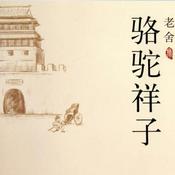 老舍
骆驼祥子